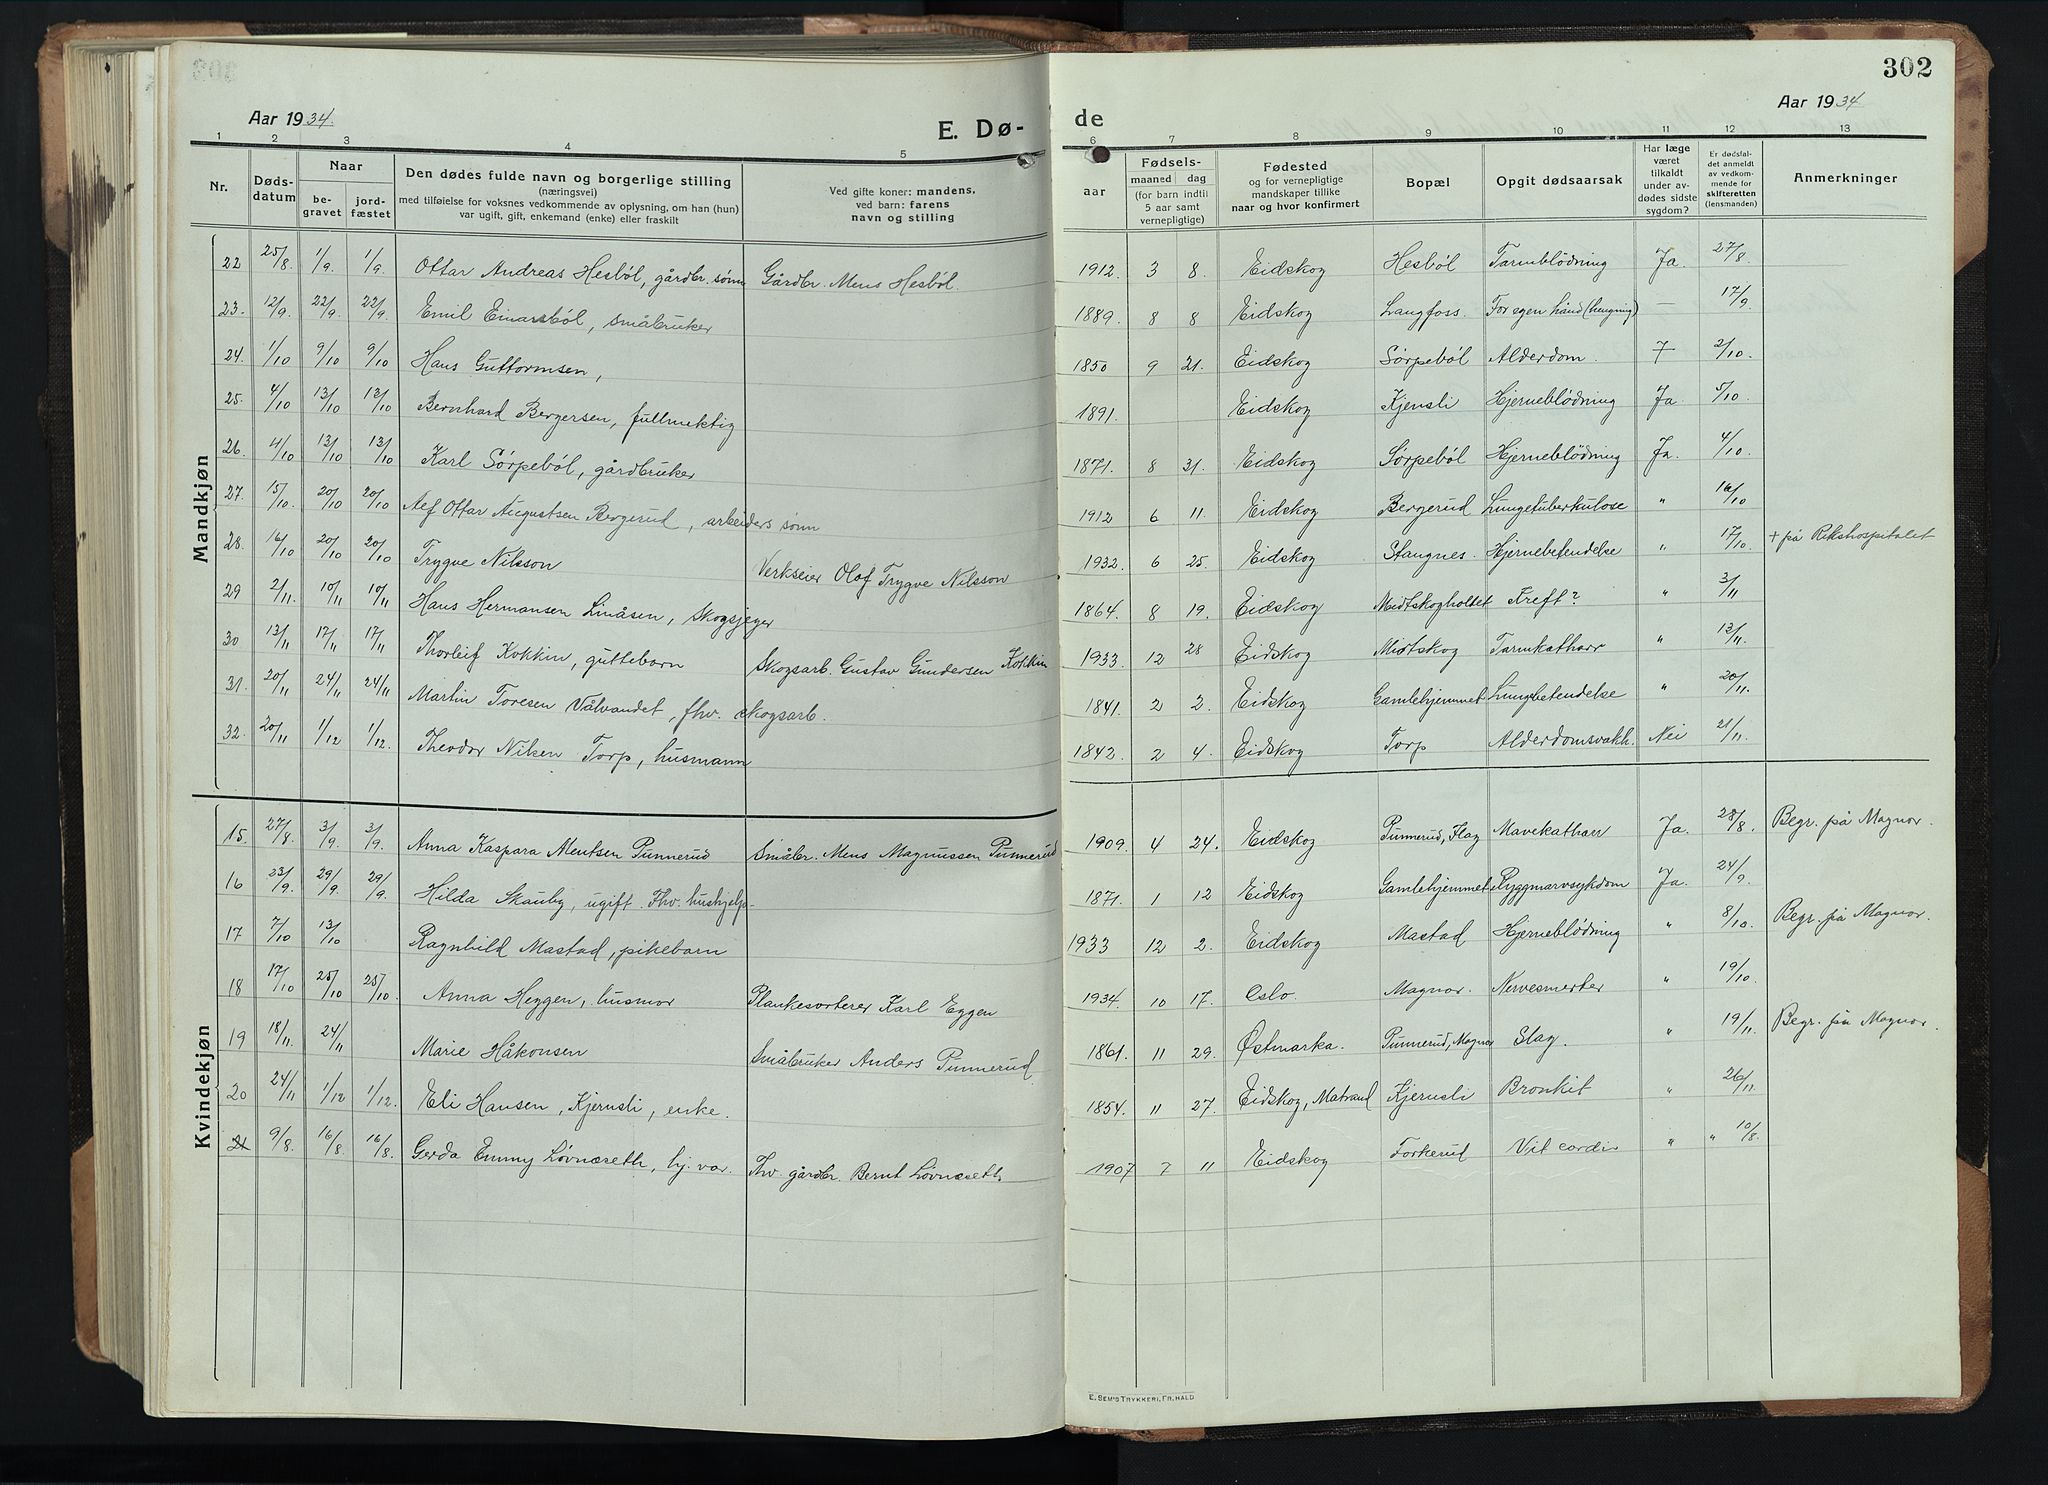 302
Aar 1934.
E. Dø-
de
Aar 1934
1 2 3 4 5 6 7 8 9 10 11 12 13
Nr.
Døds-
datum
Naar
be-
gravet
jord-
fæstet
Den dødes fulde navn og borgerlige stilling
(næringsvei)
med tilføielse for voksnes vedkommende av oplysning, om han (hun)
var ugift, gift, enkemand (enke) eller fraskilt
Ved gifte koner: mandens,
ved barn: farens
navn og stilling
aar
Fødsels-
maaned dag
(for barn indtil
5 aar samt
vernepligtige)
Fødested
og for vernepligtige
mandskaper tillike
naar og hvor konfirmert
Bopæl
Opgit dødsaarsak
Har læge
været
tilkaldt
under av-
dødes sidste
sygdom?
Er dødsfal-
det anmeldt
av vedkom-
mende for
skifteretten
(lensmanden)
Anmerkninger
Mandkjøn
22 25/8. 1/9. 1/9. Ottar Andreas Hesbøl, gårdbr. sønn Gårdbr. Mens Hesbøl. 1912. 3 8. Eidskog Hesbøl Tarmblødning Ja. 27/8.
23. 12/9. 22/9. 22/9. Emil Einarsbøl, småbruker 1889. 8 8 Eidskog Langfoss. For egen hånd (hengning) — 17/9.
24. 1/10 9/10 9/10 Hans Guttormsen, 1850 9 21. Eidskog Sørpebøl Alderdom. 7 2/10.
25. 4/10 13/10 13/10 Bernhard Bergersen, fullmektig 1891. Eidskog Kjensli Hjerneblødning Ja. 5/10.
26. 4/10 13/10 13/10 Karl Sørpebøl, gårdbruker 1871. 8 31. Eidskog Sørpebøl Hjerneblødning Ja. 4/10.
27. 15/10 20/10 20/10 Alf Ottar Augustsen Bergerud, arbeiders sønn 1912 6 11. Eidskog Bergerud Lungetuberkulose " 16/10
28. 16/10 20/10 20/10 Trygve Nilsson Verkseier Olof Trygve Nilsson 1932. 6 25. Eidskog Stangnes. Hjernebetendelse " 17/10. + på Rikshospitalet
29 2/11. 10/11 10/11 Hans Hermansen Linåsen, Skogsjeger 1864. 8 19. Eidskog Midtskogholtet Kreft? " 3/11
30 13/11 17/11 17/11 Thorleif Kokkin, guttebarn Skogsarb. Gustav Gundersen Kokkin 1933. 12 28 Eidskog Midtskog Tarmkatharr " 13/11.
31. 20/11 24/11 24/11 Martin Toresen Vålvandet, fhv. skogsarb. 1841. 2 2. Eidskog Gamlehjemmet Lungebetendelse " 20/11.
32. 20/11 1/12 1/12. Theodor Nilsen Torp, husmann 1842. 2 4. Eidskog Torp Alderdomsvakh. Nei 21/11.
Kvindekjøn
15. 27/8 3/9. 3/9. Anna Kaspara Mentsen Punnerud Småbr. Mens Magnussen Punnerud 1909. 4 24. Eidskog Punnerud, Flag Mavekatharr Ja. 28/8. Begr. på Magnor.
16 23/9. 29/9. 29/9. Hilda Skauby, ugift. Fhv. hushjelp. 1871. 1 12 Eidskog Gamlehjemmet Ryggmarvsykdom Ja. 24/9.
17 7/10 13/10 Ragnhild Mastad, pikebarn 1933 12 2. Eidskog Mastad Hjerneblødning " 8/10. Begr. på Magnor.
18 17/10 25/10 25/10. Anna Heggen, husmor Plankesorterer Karl Eggen 1934. 10 17. Oslo. Magnor. Nervesmerter " 19/10.
19 18/11. 24/11 Marie Håkonsen Småbruker Anders Punnerud 1861. 11 29. Østmarka. Punnerud, Magnor Slag. " 19/11. Begr. på Magnor.
20 24/11 1/12 1/12. Eli Hansen, Kjernsli, enke. 1854. 11 27. Eidskog, Matrand Kjernsli Bronkit " 26/11
21 9/8. 16/8 16/8. Gerda Emmy Løvnæseth, hj. var. Fhv. gårdbr. Bernt Løvnæseth 1907 7 11 Eidskog Forkerud Vit cordis " " 10/8.
E. SEM'S TRYKKERI, FR.HALD